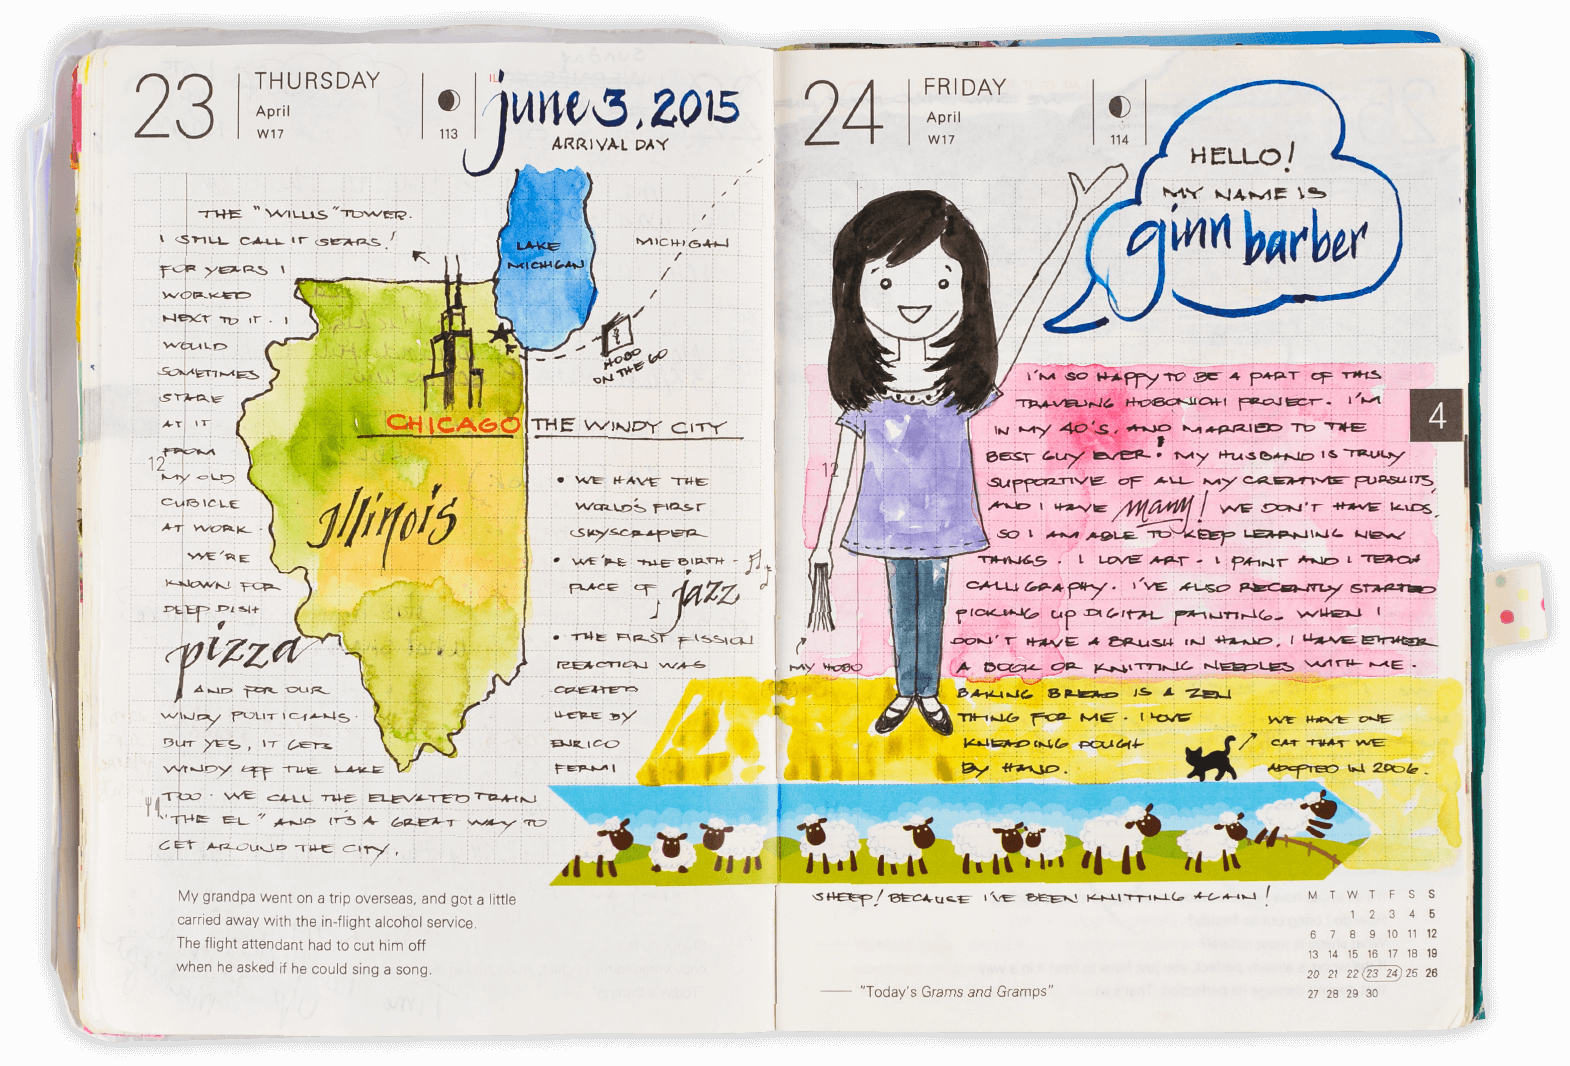 23
THURSDAY
April
W17
113
june 3, 2015
ARRIVAL DAY
THE "WILLIS" TOWER.
I STILL CALL IT SEARS!
FOR YEARS I
WORKED
NEXT TO IT. I
WOULD
SOMETIMES
STARE
AT IT
FROM
MY OLD
CUBICLE
AT WORK.
WE'RE
KNOWN FOR
DEEP DISH
pizza
AND FOR OUR
WINDY POLITICIANS.
BUT YES, IT GETS
WINDY OFF THE LAKE
TOO. WE CALL THE ELEVATED TRAIN
"THE EL" AND IT'S A GREAT WAY TO
GET AROUND THE CITY.
12
LAKE
MICHIGAN
MICHIGAN
HOBO
ON THE GO
CHICAGO THE WINDY CITY
Illinois
• WE HAVE THE
WORLD'S FIRST
SKYSCRAPER
• WE'RE THE BIRTH-
PLACE OF jazz
• THE FIRST FISSION
REACTION WAS
CREATED
HERE BY
ENRICO
FERMI
My grandpa went on a trip overseas, and got a little
carried away with the in-flight alcohol service.
The flight attendant had to cut him off
when he asked if he could sing a song.
24
FRIDAY
April
W17
114
HELLO!
MY NAME IS
ginn barber
4
12
I'M SO HAPPY TO BE A PART OF THIS
TRAVELING HOBONICHI PROJECT. I'M
IN MY 40'S, AND MARRIED TO THE
BEST GUY EVER! MY HUSBAND IS TRULY
SUPPORTIVE OF ALL MY CREATIVE PURSUITS,
AND I HAVE many! WE DON'T HAVE KIDS,
SO I AM ABLE TO KEEP LEARNING NEW
THINGS. I LOVE ART. I PAINT AND I TEACH
CALLIGRAPHY. I'VE ALSO RECENTLY STARTED
PICKING UP DIGITAL PAINTING. WHEN I
DON'T HAVE A BRUSH IN HAND, I HAVE EITHER
A BOOK OR KNITTING NEEDLES WITH ME.
BAKING BREAD IS A ZEN
THING FOR ME. I LOVE
KNEADING DOUGH
BY HAND.
MY HOBO
WE HAVE ONE
CAT THAT WE
ADOPTED IN 2006.
SHEEP! BECAUSE I'VE BEEN KNITTING AGAIN!
"Today's Grams and Gramps"
M T W T F S S
1 2 3 4 5
6 7 8 9 10 11 12
13 14 15 16 17 18 19
20 21 22 23 24 25 26
27 28 29 30